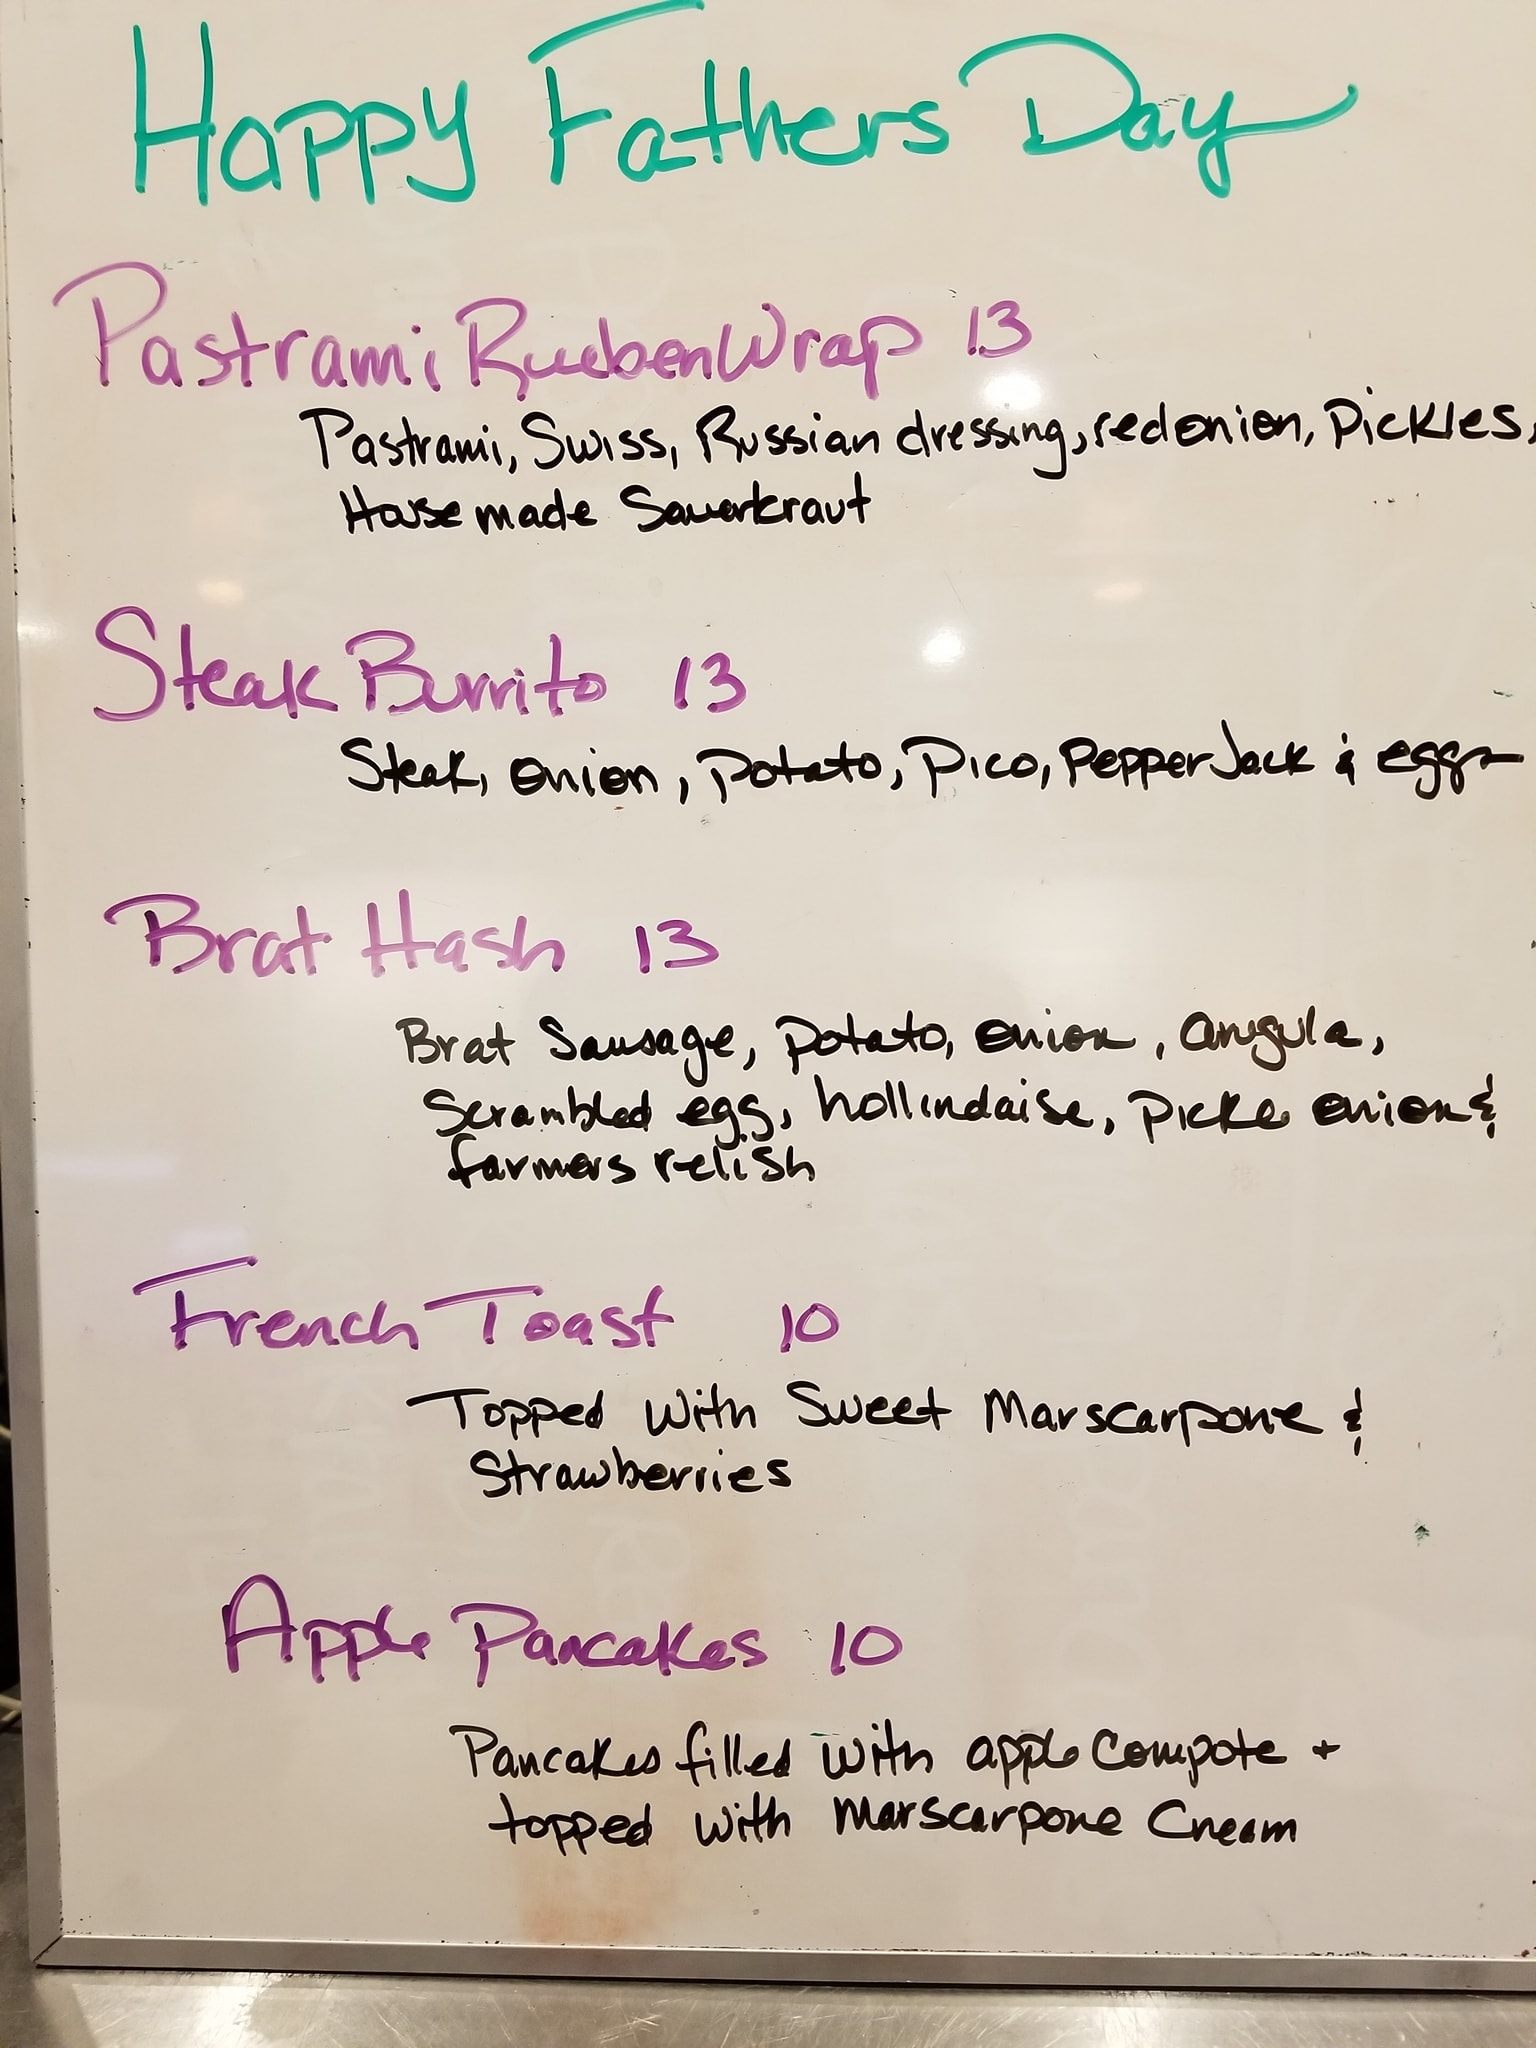 Happy Fathers Day
Pastrami Rueben Wrap 13
Pastrami, Swiss, Russian dressing, red onion, Pickles,
House made Sauerkraut
Steak Burrito 13
Steak, onion, potato, Pico, Pepper Jack & eggs
Brat Hash 13
Brat Sausage, potato, onion, arugula,
Scrambled egg, hollindaise, Pickle onion &
farmers relish
French Toast 10
Topped with Sweet Marscarpone &
Strawberries
Apple Pancakes 10
Pancakes filled with apple Compote +
topped with Marscarpone Cream